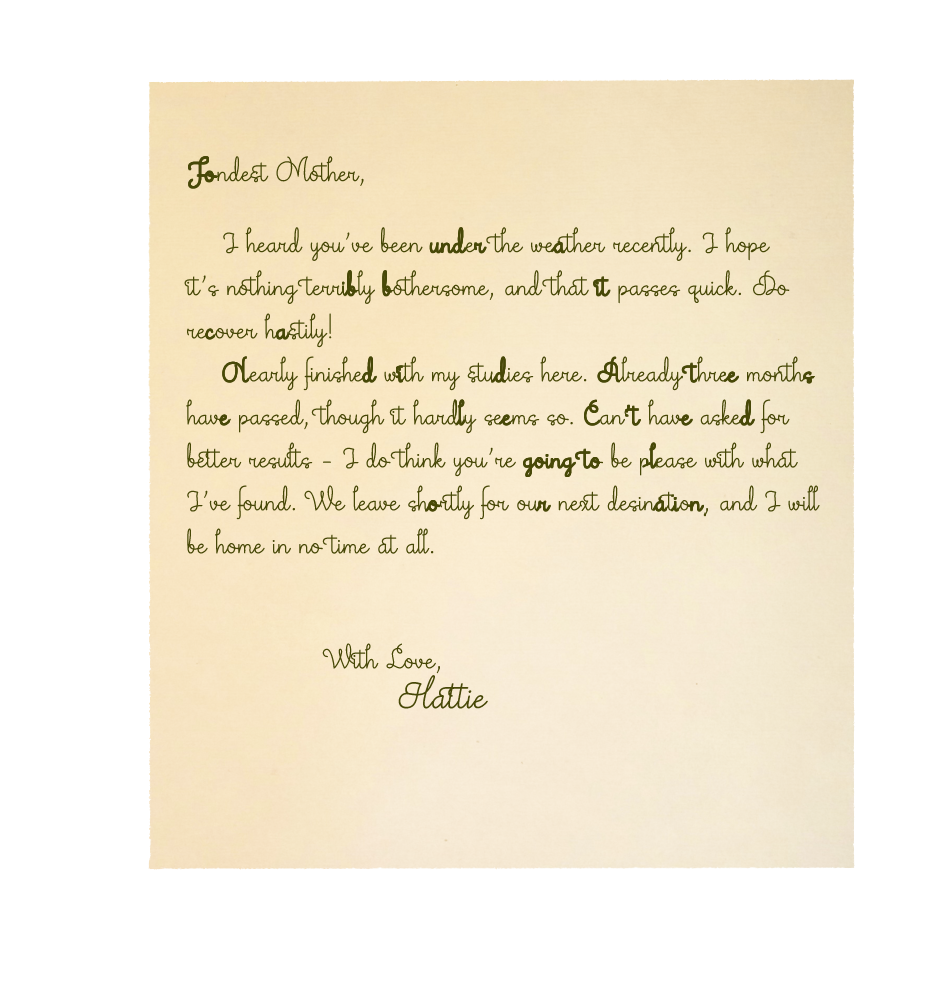 Fondest Mother,
I heard you've been under the weather recently. I hope
it's nothing terribly bothersome, and that it passes quick. Do
recover hastily!
Nearly finished with my studies here. Already three months
have passed, though it hardly seems so. Can't have asked for
better results - I do think you're going to be please with what
I've found. We leave shortly for our next desination, and I will
be home in no time at all.
With Love,
Hattie